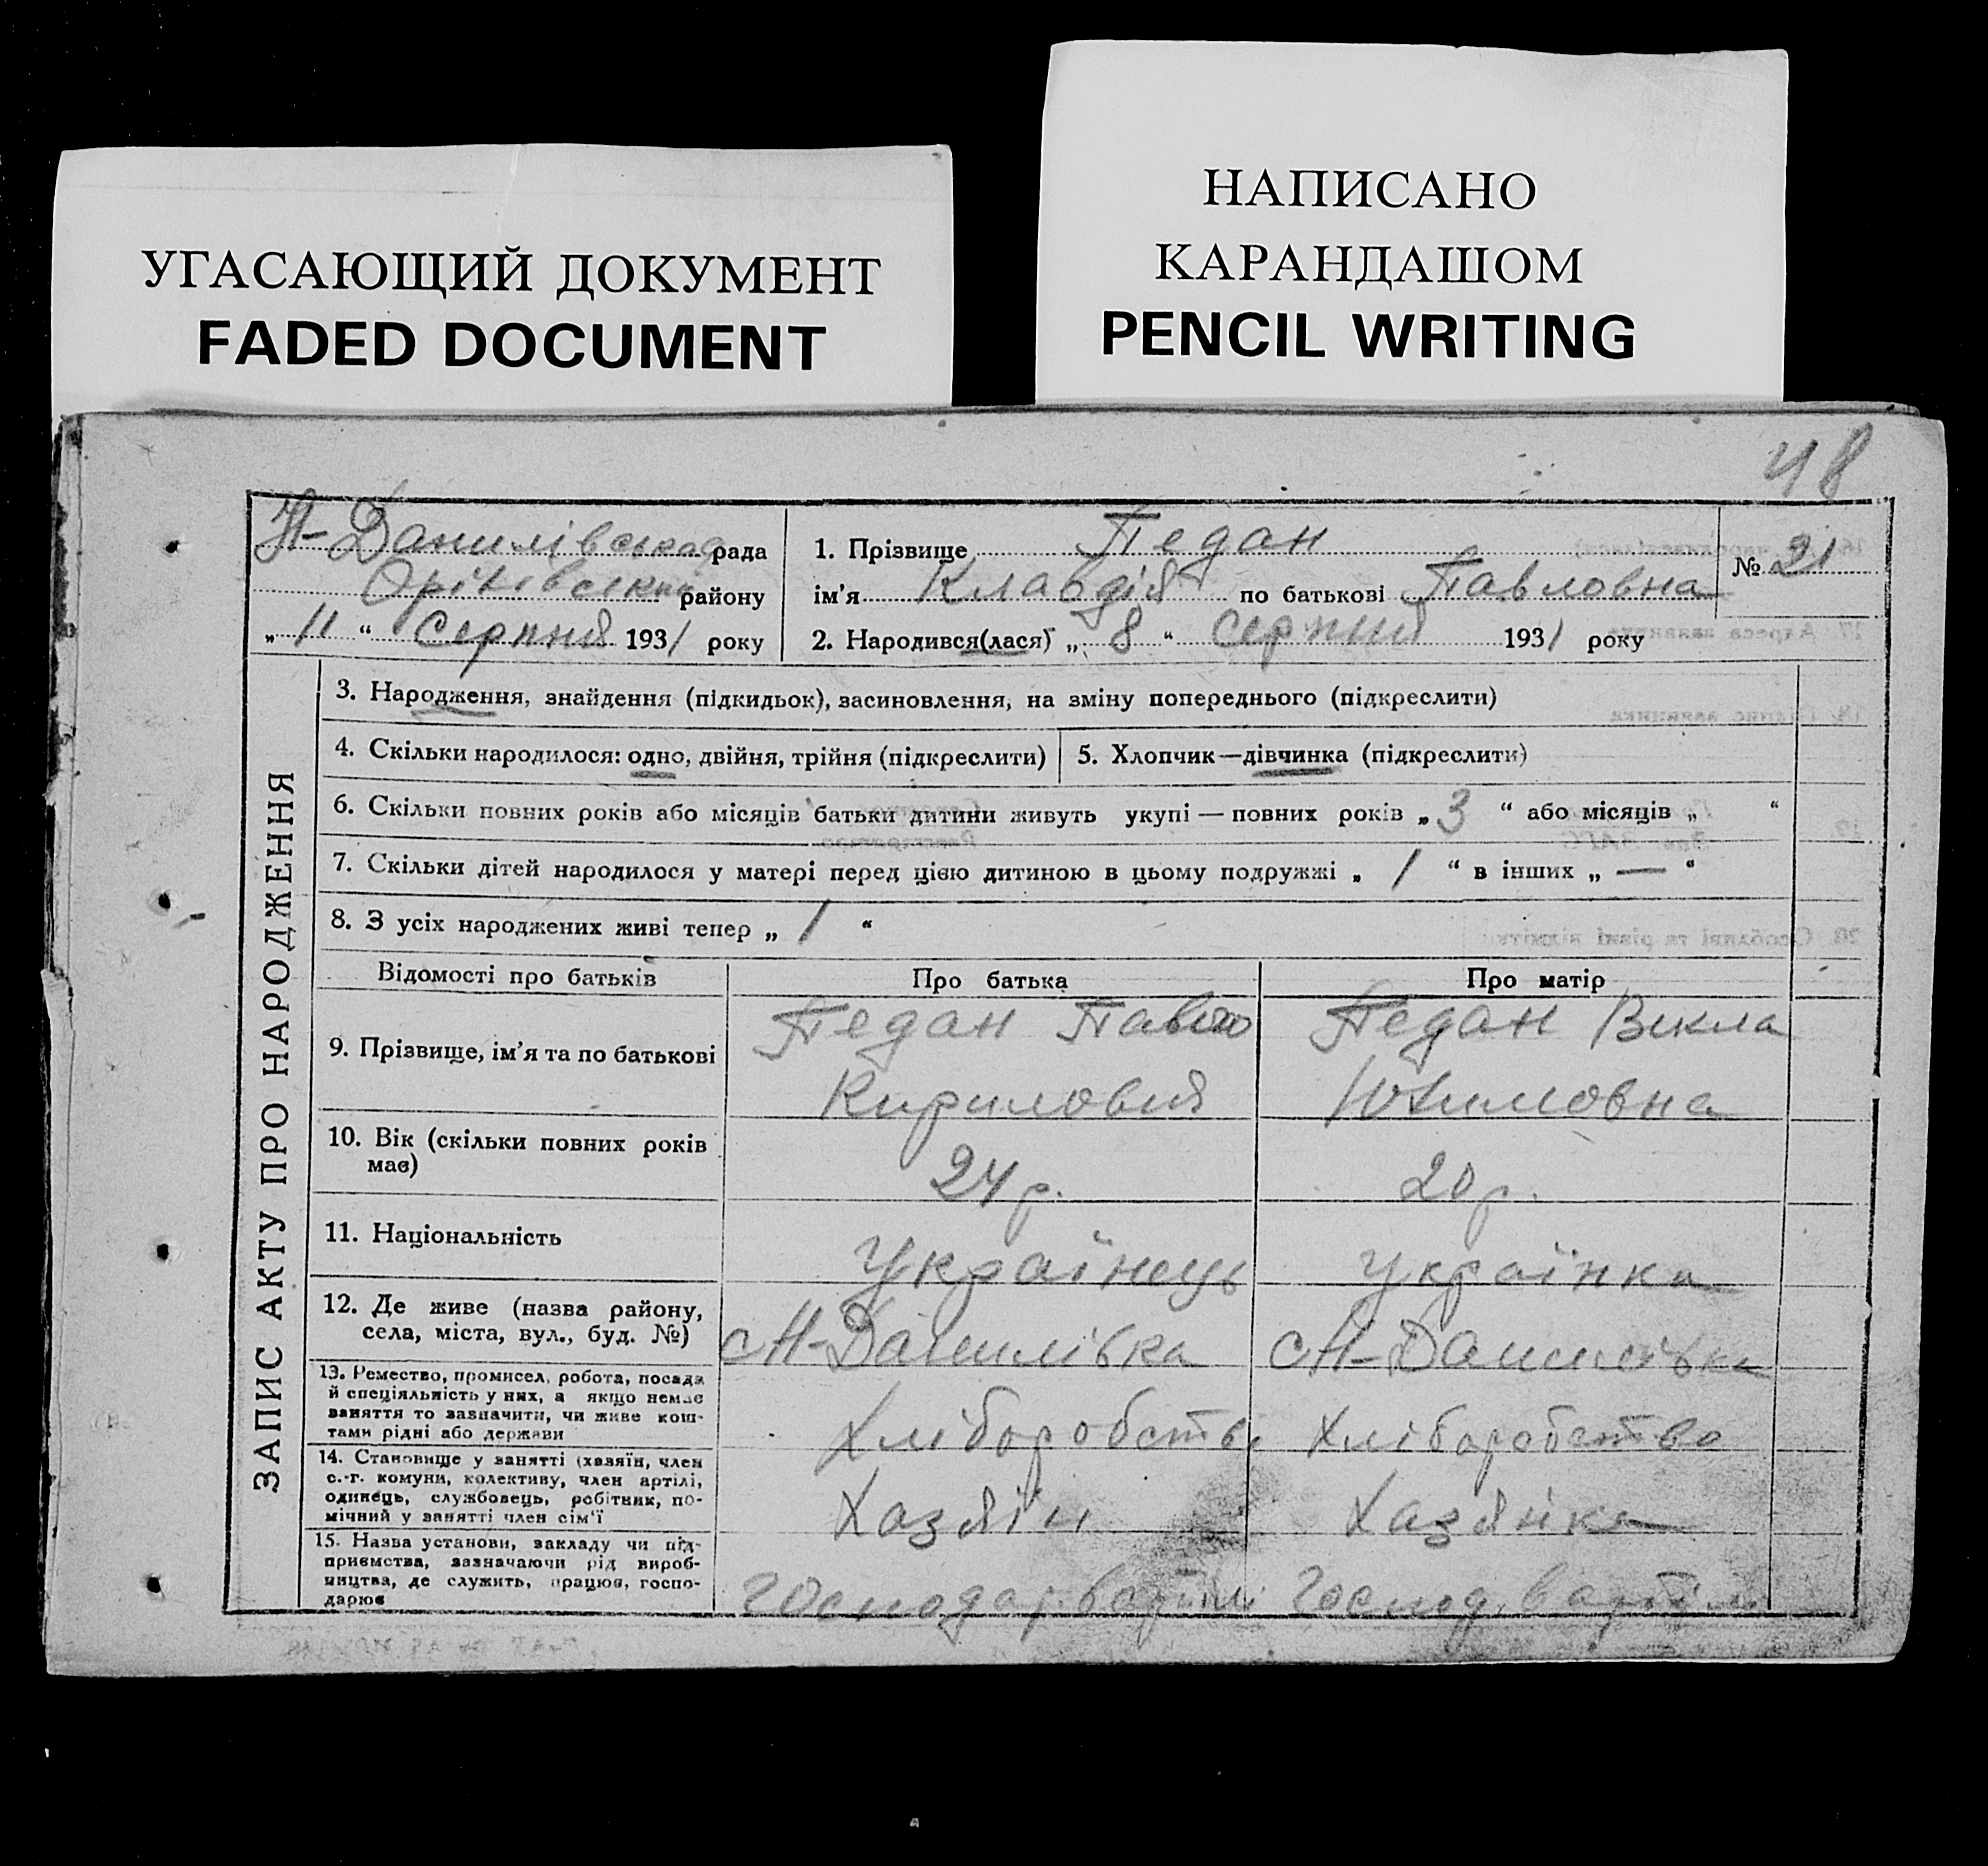 УГАСАЮЩИЙ ДОКУМЕНТ
FADED DOCUMENT
НАПИСАНО
КАРАНДАШОМ
PENCIL WRITING
48
Н-Данилівська рада
Оріхівський району
„ 11 “ Серпня 1931 року
1. Прізвище Педан
ім’я Клавдія по батькові Павловна
№ 21
2. Народився(лася) „ 8 “ Серпня 1931 року
ЗАПИС АКТУ ПРО НАРОДЖЕННЯ
3. Народження, знайдення (підкидьок), засиновлення, на зміну попереднього (підкреслити)
4. Скільки народилося: одно, двійня, трійня (підкреслити)
5. Хлопчик—дівчинка (підкреслити)
6. Скільки повних років або місяців батьки дитини живуть укупі — повних років „ 3 “ або місяців „ “
7. Скільки дітей народилося у матері перед цією дитиною в цьому подружжі „ 1 “ в інших „ — “
8. З усіх народжених живі тепер „ 1 “
Відомості про батьків
Про батька
Про матір
9. Прізвище, ім’я та по батькові
Педан Павло
Кирилович
Педан Векла
Юхимовна
10. Вік (скільки повних років
має)
24 р.
20 р.
11. Національність
Українець
Українка
12. Де живе (назва району,
села, міста, вул., буд. №)
с Н-Данилівка
с Н-Данилівка
13. Ремество, промисел, робота, посада
й спеціяльність у них, а якщо немає
заняття то зазначити, чи живе кош-
тами рідні або держави
Хліборобство
Хліборобство
14. Становище у занятті (хазяїн, член
с.-г. комуни, колективу, член артілі,
одинець, службовець, робітник, по-
мічний у занятті член сім’ї
Хазяїн
Хазяйка
15. Назва установи, закладу чи під-
приємства, зазначаючи рід вироб-
ництва, де служить, працює, госпо-
дарює
Господар. в артіли
Господ. в артіли